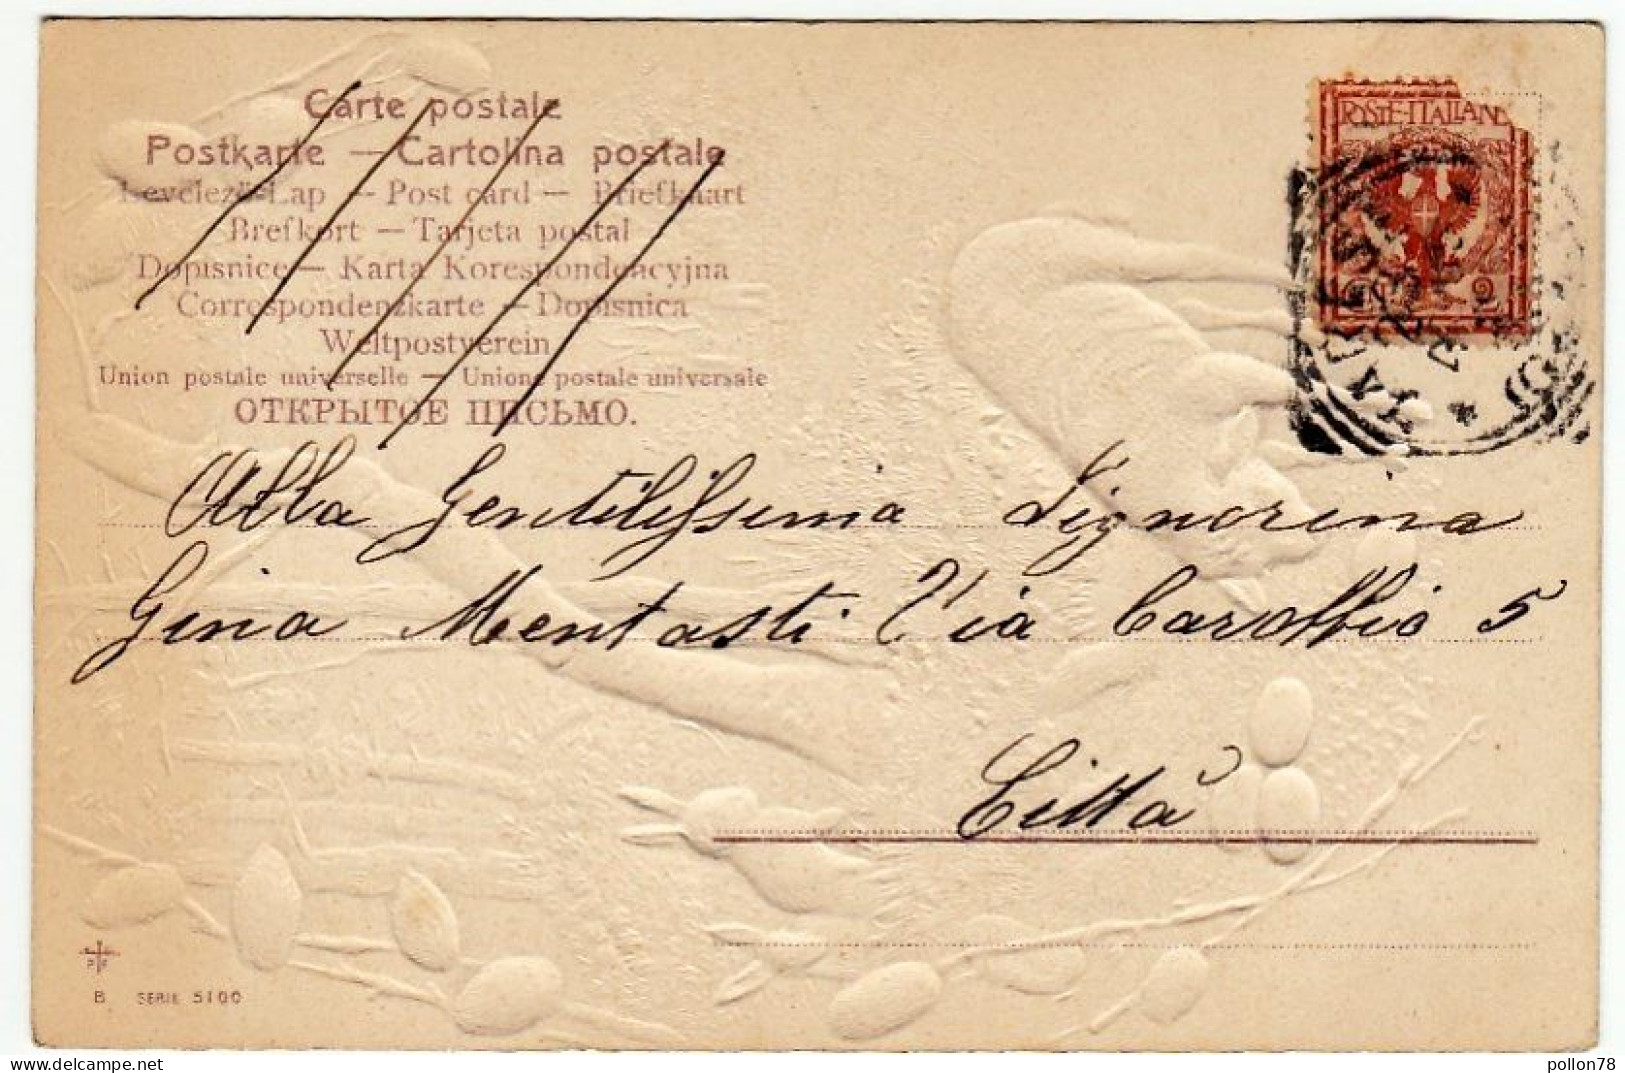 Carte postale
Postkarte — Cartolina postale
Levelező-Lap — Post card — Briefkaart
Brefkort — Tarjeta postal
Dopisnice — Karta Korespondencyjna
Correspondenzkarte — Dopisnica
Weltpostverein
Union postale universelle — Unione postale universale
ОТКРЫТОЕ ПИСЬМО.
POSTE·ITALIANE
VARESE
Alla Gentilissima Signorina
Gina Mentasti Via Carobbio 5
Città
P F
B SERIE 5100
delcampe.net
pollon78